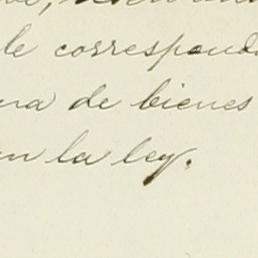 le correspond
na de bienes
en la ley.